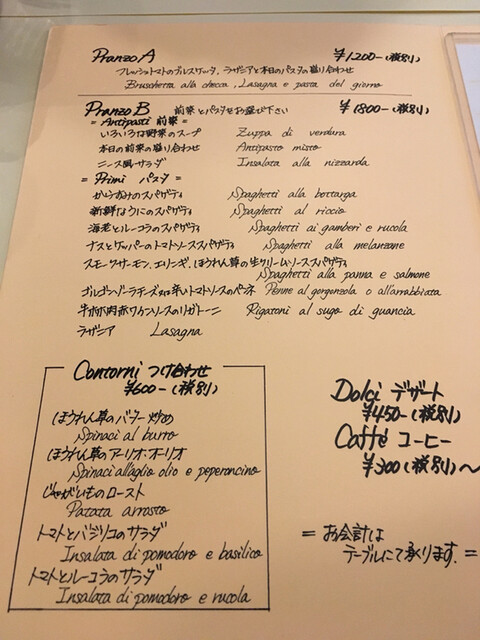 Pranzo A ¥1200-(税別)
フレッシュトマトのブルスケッタ、ラザニアと本日のパスタの盛り合わせ
Bruschetta alla checca, Lasagna e pasta del giorno
Pranzo B 前菜とパスタをお選び下さい ¥1800-(税別)
= Antipasti 前菜 =
いろいろな野菜のスープ Zuppa di verdura
本日の前菜の盛り合わせ Antipasto misto
ニース風サラダ Insalata alla nizzarda
= Primi パスタ =
からすみのスパゲティ Spaghetti alla bottarga
新鮮なうにのスパゲティ Spaghetti al riccio
海老とルーコラのスパゲティ Spaghetti ai gamberi e rucola
ナスとケッパーのトマトソーススパゲティ Spaghetti alla melanzane
スモークサーモン、エリンギ、ほうれん草の生クリームソーススパゲティ
Spaghetti alla panna e salmone
ゴルゴンゾーラチーズ又は辛いトマトソースのペンネ Penne al gorgonzola o all'arrabbiata
牛ホホ肉赤ワインソースのリガトーニ Rigatoni al sugo di guancia
ラザニア Lasagna
Contorni つけ合わせ
¥600-(税別)
ほうれん草のバター炒め
Spinaci al burro
ほうれん草のアーリオ・オーリオ
Spinaci all'aglio olio e peperoncino
じゃがいものロースト
Patata arrosto
トマトとバジリコのサラダ
Insalata di pomodoro e basilico
トマトとルーコラのサラダ
Insalata di pomodoro e rucola
Dolci デザート
¥450-(税別)
Caffé コーヒー
¥300(税別)〜
= お会計は
テーブルにて承ります. =